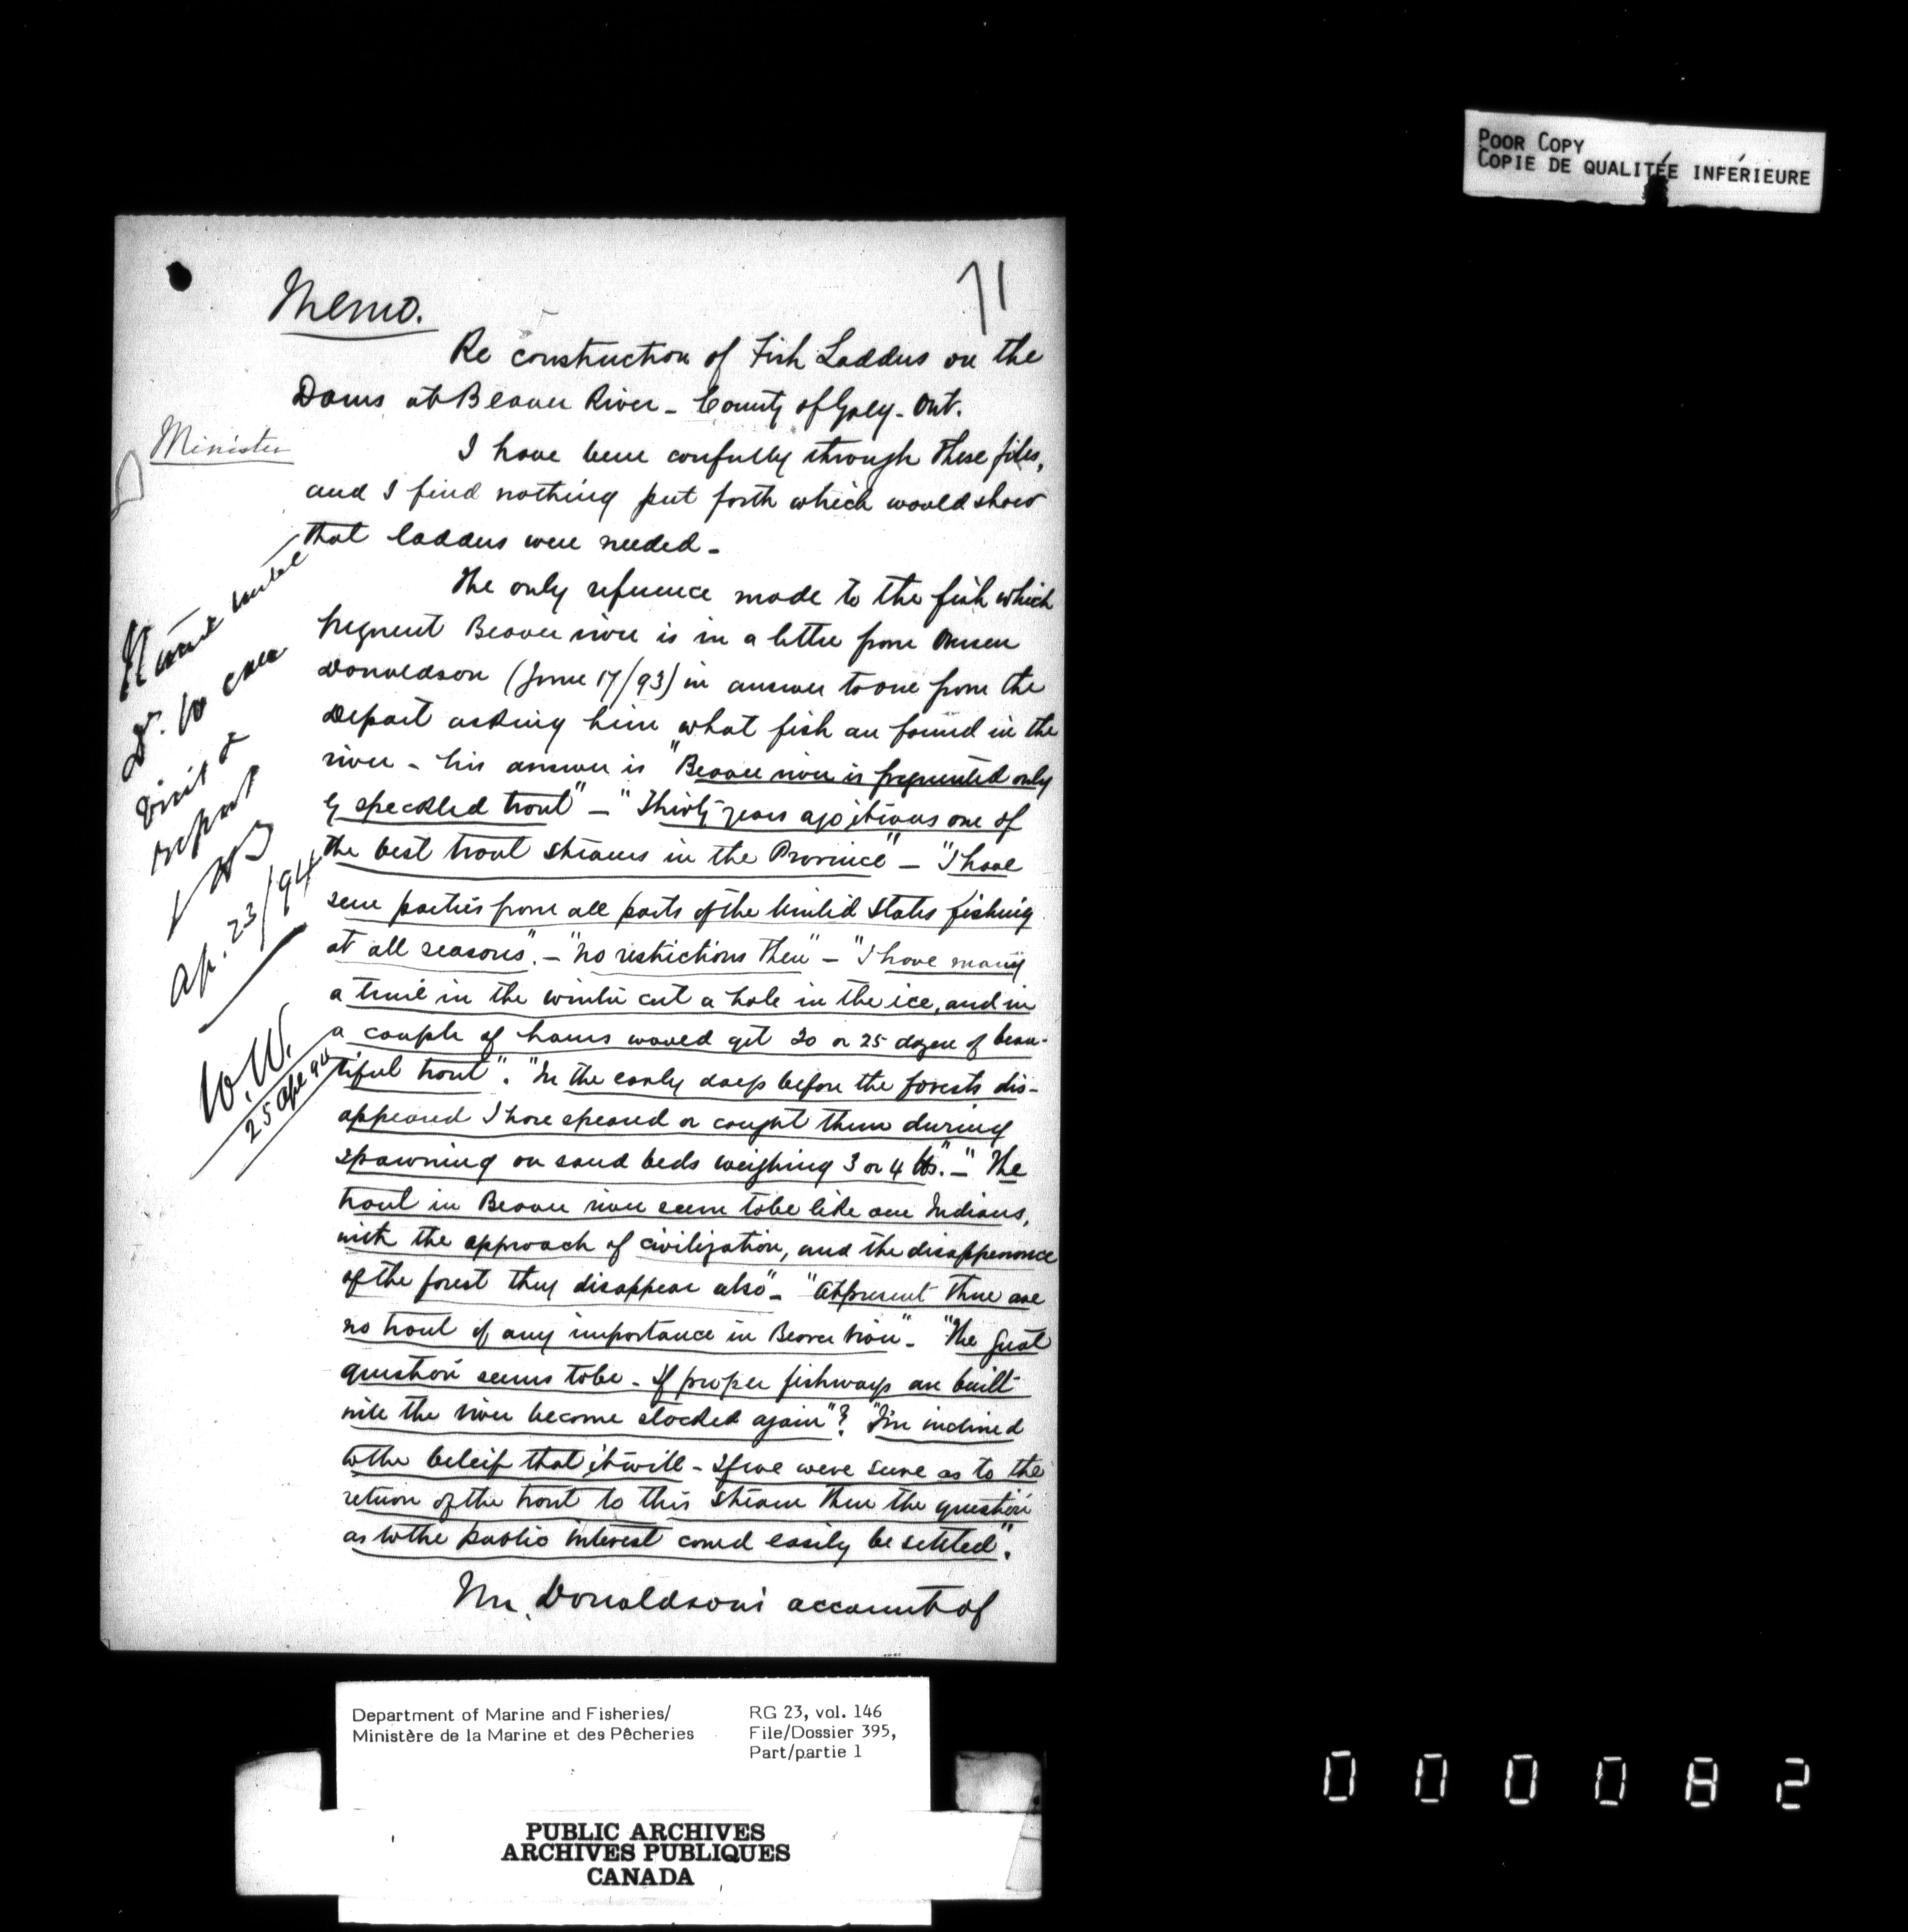 POOR COPY
COPIE DE QUALITÉE INFÉRIEURE
71
Memo.
Re construction of Fish Ladders on the
Dams at Beaver River - County of Grey - Ont.
Minister
I have been carefully through these files,
and I find nothing put forth which would show
that ladders were needed -
The only reference made to the fish which
frequent Beaver river is in a letter from
Donaldson (June 17/93) in answer to one from the
Depart asking him what fish are found in the
river - his answer is "Beaver river is frequented only
by speckled trout" - "Thirty years ago it was one of
the best trout streams in the Province" - "I have
seen parties from all parts of the United States fishing
at all seasons". - "no restrictions then" - "I have many
a time in the winter cut a hole in the ice, and in
a couple of hours would get 20 or 25 dozen of beau-
tiful trout". "In the early days before the forests dis-
appeared I have speared or caught them during
spawning on sand beds weighing 3 or 4 lbs". - "The
trout in Beaver river seem to be like our Indians,
with the approach of civilization, and the disappearance
of the forest they disappear also" - "At present there are
no trout of any importance in Beaver river" - "The great
question seems to be - If proper fishways are built
will the river become stocked again"? "I'm inclined
to the beleif that it will - If we were sure as to the
return of the trout to this stream then the question
as to the public interest could easily be settled".
Mr. Donaldson's account of
visit &
report
Ap. 23/94
W.W.
25 Apl 94
Department of Marine and Fisheries/
Ministère de la Marine et des Pêcheries
RG 23, vol. 146
File/Dossier 395,
Part/partie 1
PUBLIC ARCHIVES
ARCHIVES PUBLIQUES
CANADA
000082